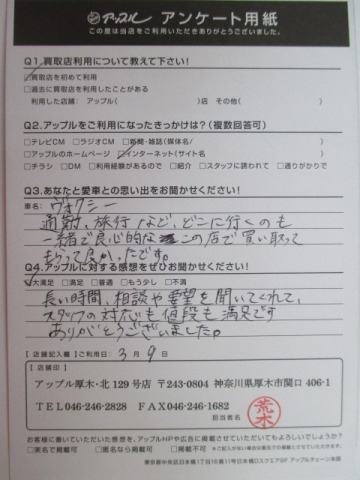 アップル アンケート用紙
この度は当店をご利用いただきありがとうございました。
Q1.買取店利用について教えて下さい!
☑買取店を初めて利用
□過去に買取店を利用したことがある
利用した店舗: アップル( )店 その他( )
Q2.アップルをご利用になったきっかけは?(複数回答可)
□テレビCM □ラジオCM □新聞・雑誌(媒体名/ )
□アップルのホームページ ☑インターネット(サイト名 )
□チラシ □DM □利用経験があるので □紹介 □スタッフに誘われて □通りがかりで
Q3.あなたと愛車との思い出をお聞かせください!
車名: ヴォクシー
通勤、旅行など、どこに行くのも
一緒で良心的なこの店で買い取って
もらって良かったです。
Q4.アップルに対する感想をぜひお聞かせください!
☑大満足 □満足 □普通 □もう少し □不満
長い時間、相談や要望を聞いてくれて、
スタッフの対応も値段も満足です
ありがとうございました。
【店舗記入欄】ご利用日: 3月9日
【店舗印】
アップル厚木・北129号店 〒243-0804 神奈川県厚木市関口 406-1
TEL046-246-2828 FAX046-246-1682
担当者名 荒木
お客様に書いていただいた感想を、アップルHPや広告に掲載させていただいてもよろしいでしょうか?
□実名で掲載可 □匿名なら掲載可 □掲載不可
東京都中央区日本橋1丁目16番11号日本橋DスクエアBF アップルチェーン本部